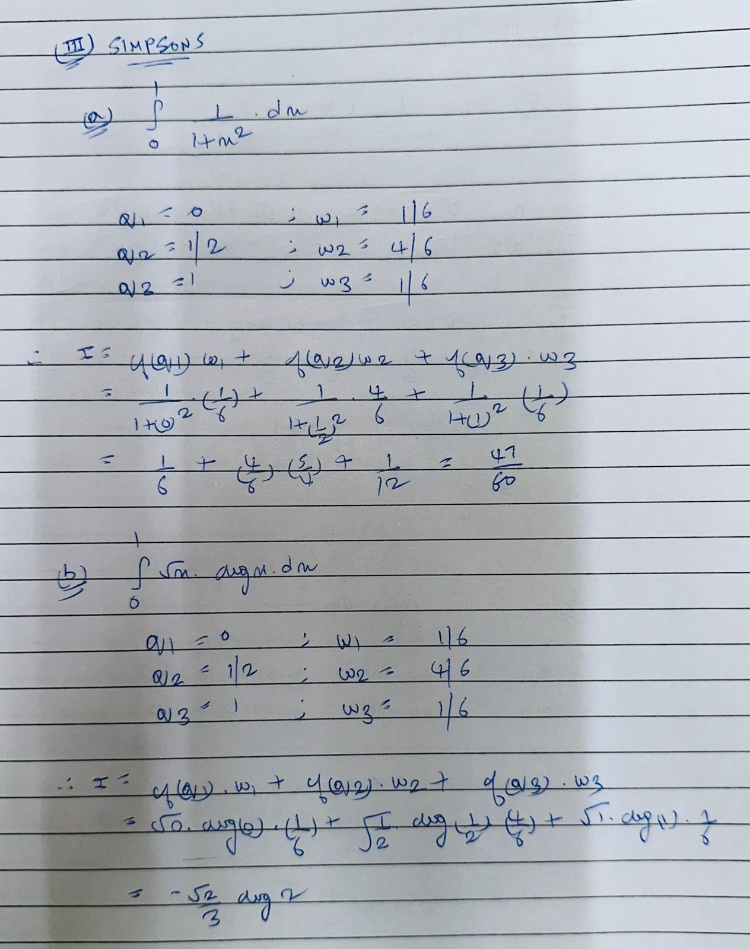 (III) SIMPSONS
(a) ∫₀¹ 1/(1+x²) . dx
x1 = 0 ; w1 = 1/6
x2 = 1/2 ; w2 = 4/6
x3 = 1 ; w3 = 1/6
∴ I = f(x1) w1 + f(x2) w2 + f(x3) . w3
= 1/(1+(0)²) . (1/6) + 1/(1+(1/2)²) . 4/6 + 1/(1+(1)²) (1/6)
= 1/6 + (4/6) (5/4) + 1/12 = 47/60
(b) ∫₀¹ √x . log x . dx
x1 = 0 ; w1 = 1/6
x2 = 1/2 ; w2 = 4/6
x3 = 1 ; w3 = 1/6
∴ I = f(x1) . w1 + f(x2) . w2 + f(x3) . w3
= √0 . log(0) . (1/6) + √(1/2) log (1/2) (4/6) + √1 . log(1) . 1/6
= -√2/3 log 2